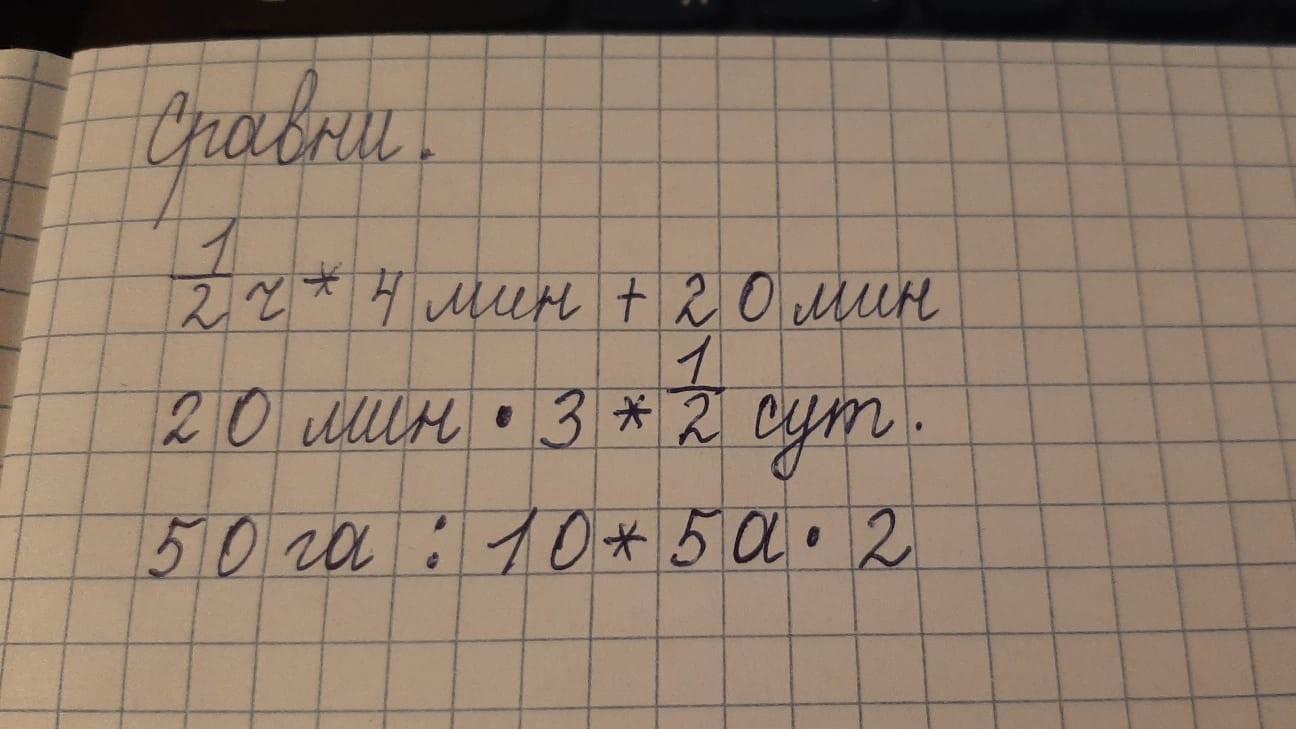 Сравни.
1/2 ч * 4 мин + 20 мин
20 мин · 3 * 1/2 сут.
50 га : 10 * 5а · 2